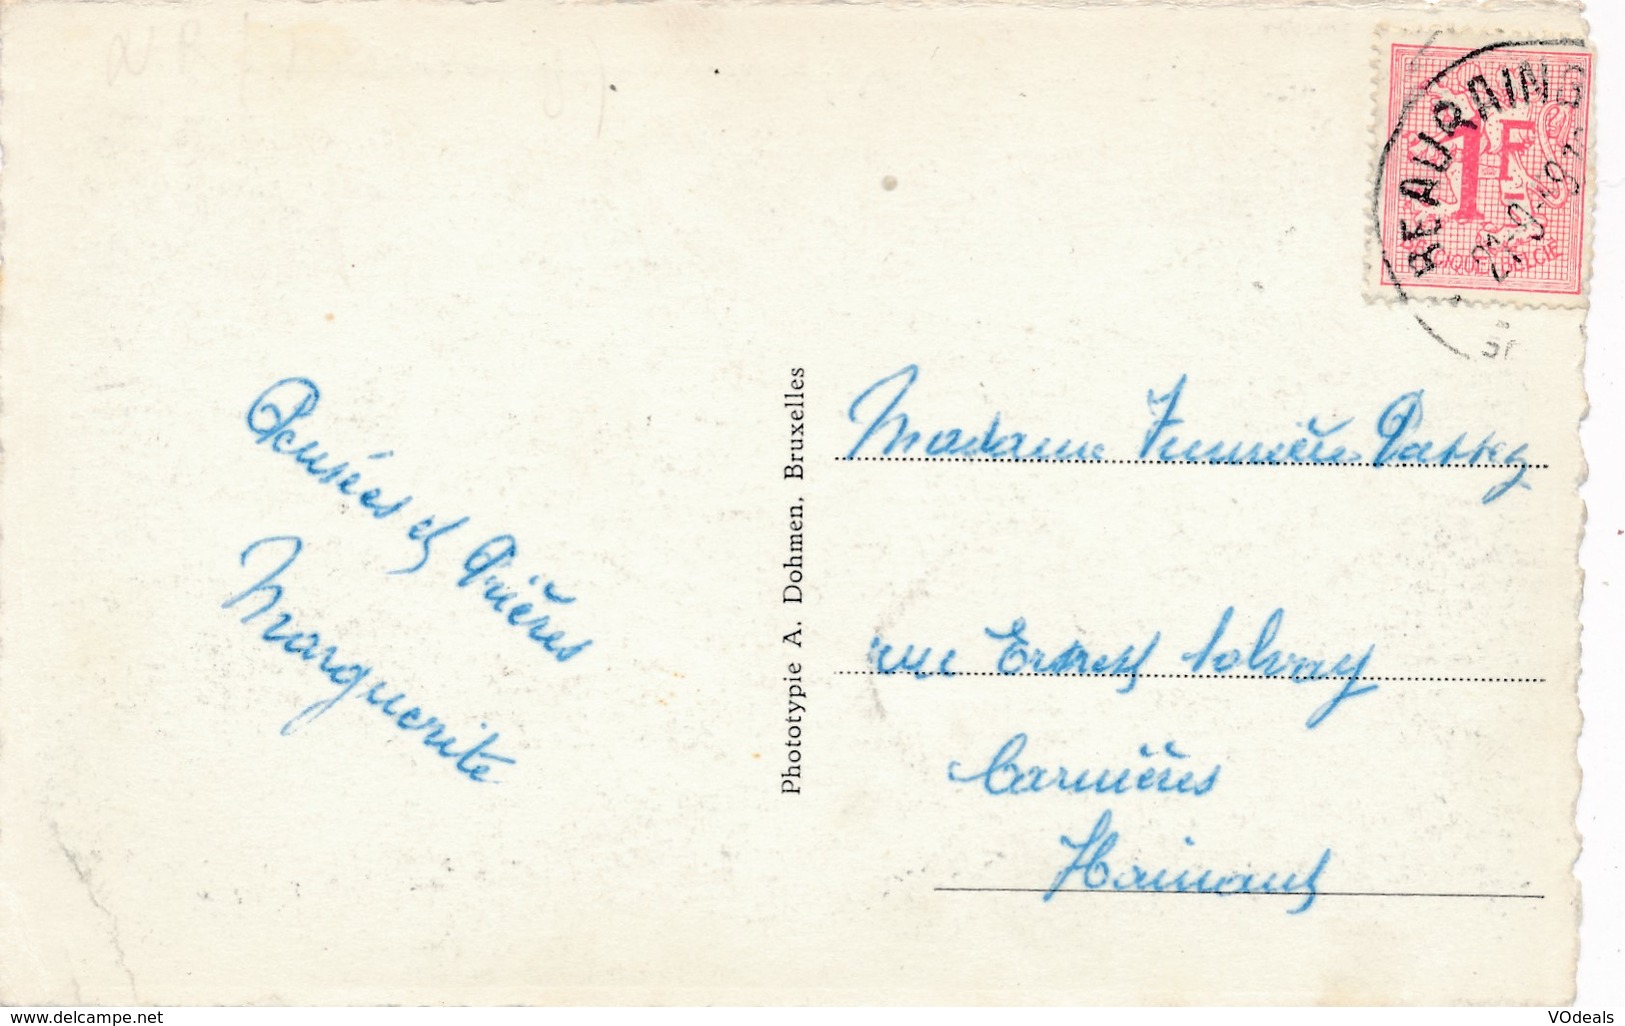 BEAURAING
1F
BELGIQUE-BELGIE
Pensées et Prières
Marguerite
Phototypie A. Dohmen, Bruxelles
Madame
rue Ernest Solvay
Carnières
Hainaut
www.delcampe.net
VOdeals